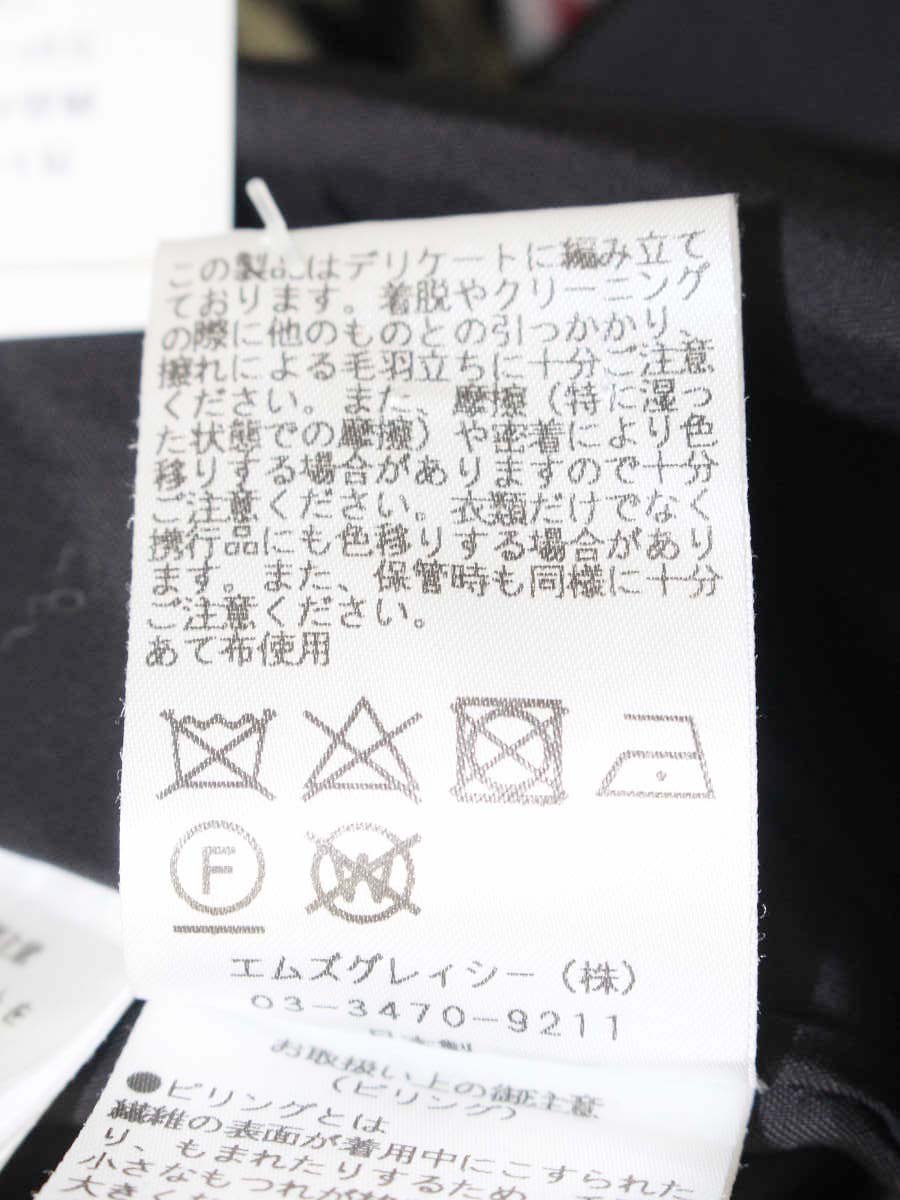 この製品はデリケートに編み立て
ております。着脱やクリーニング
の際に他のものとの引っかかり、
擦れによる毛羽立ちに十分ご注意
ください。また、摩擦（特に湿っ
た状態での摩擦）や密着により色
移りする場合がありますので十分
ご注意ください。衣類だけでなく
携行品にも色移りする場合があり
ます。また、保管時も同様に十分
ご注意ください。
あて布使用
F
W
エムズグレィシー（株）
03-3470-9211
日本製
お取扱い上の御注意
（ピリング）
●ピリングとは
繊維の表面が着用中にこすられた
り、もまれたりするため、
小さなもつれが
大きく